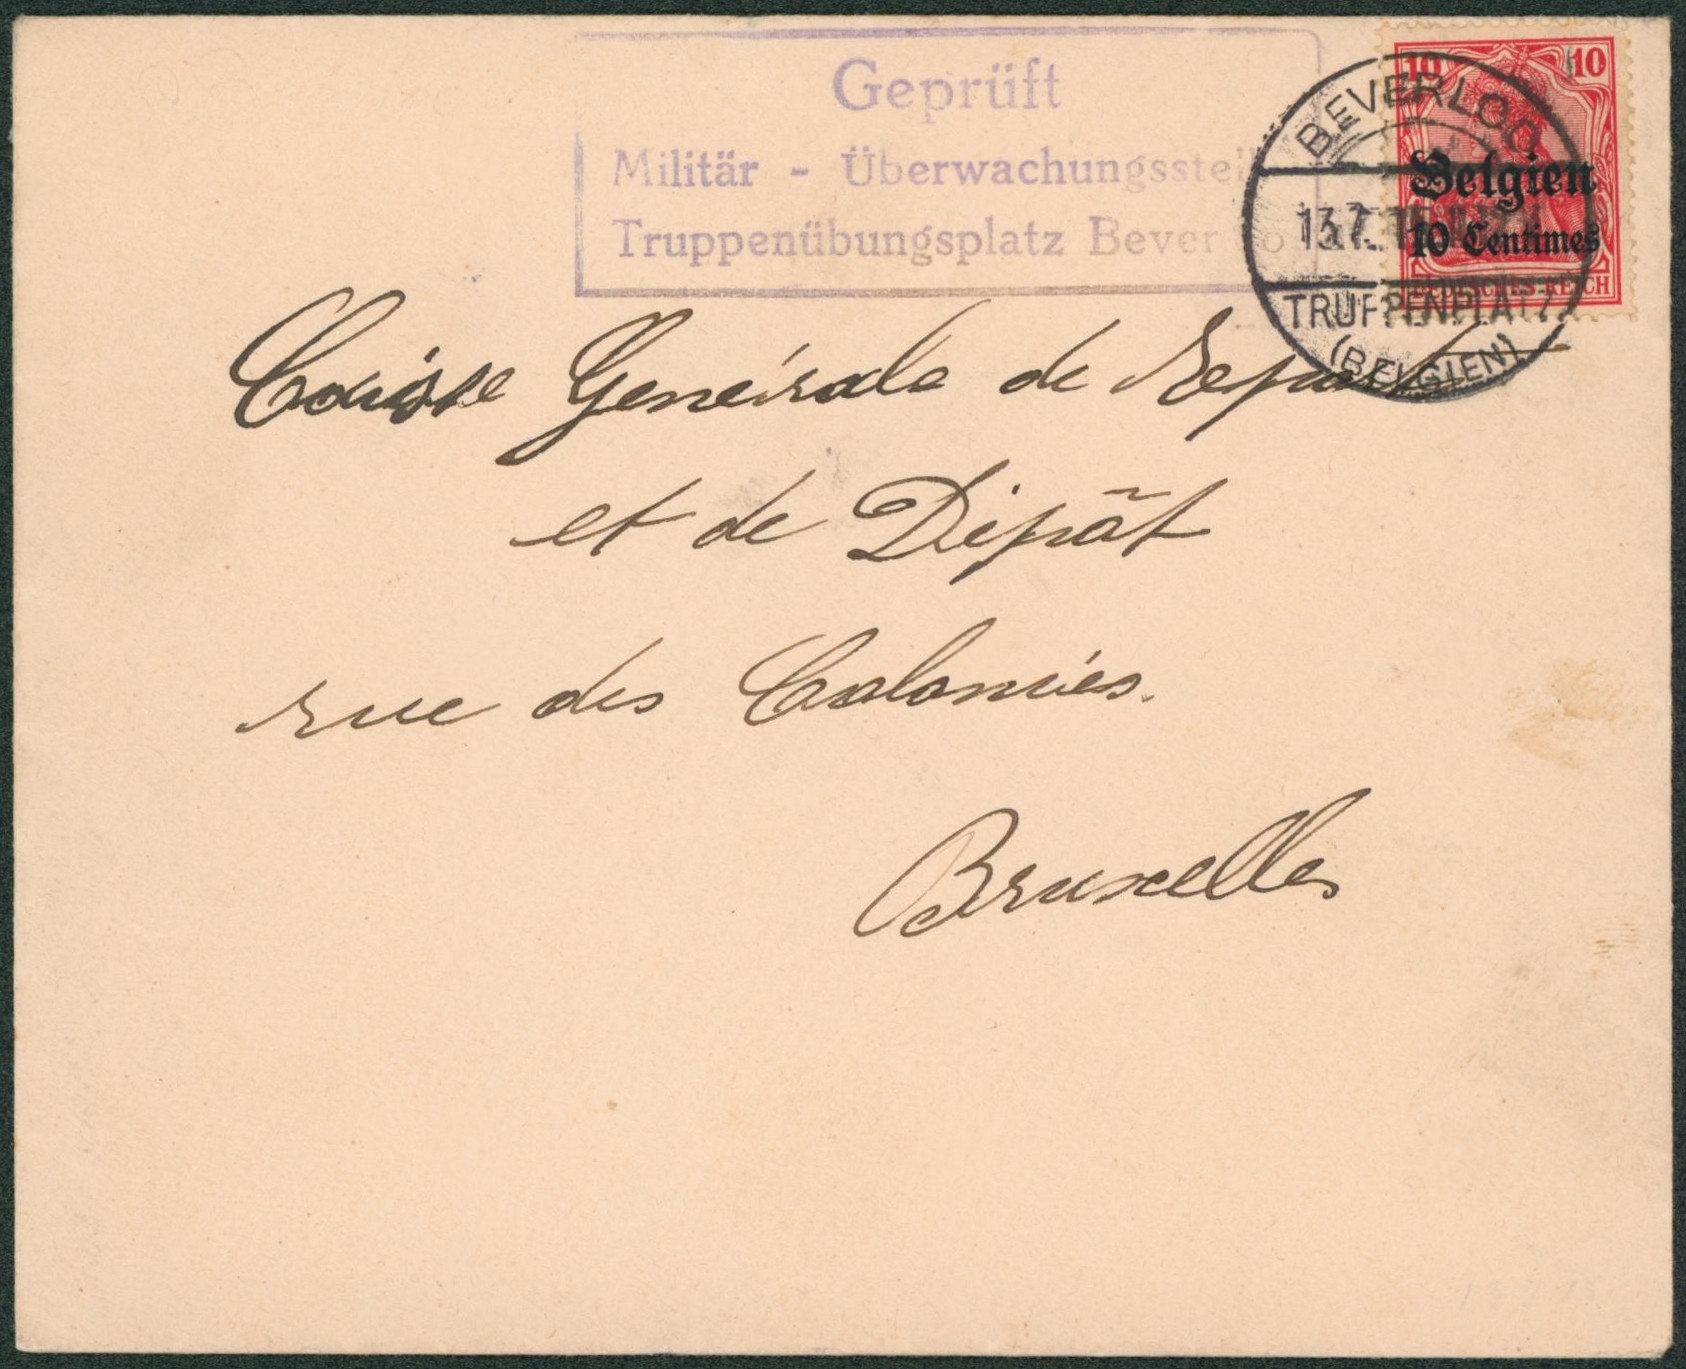 Geprüft
Militär - Überwachungsstell
Truppenübungsplatz Beverloo
10 10
Belgien
10 Centimes
DEUTSCHES REICH
BEVERLOO
13.7.
TRUPPENPLATZ
(BELGIEN)
Caisse Générale de Report
et de Dépôt
rue des Colonies.
Bruxelles